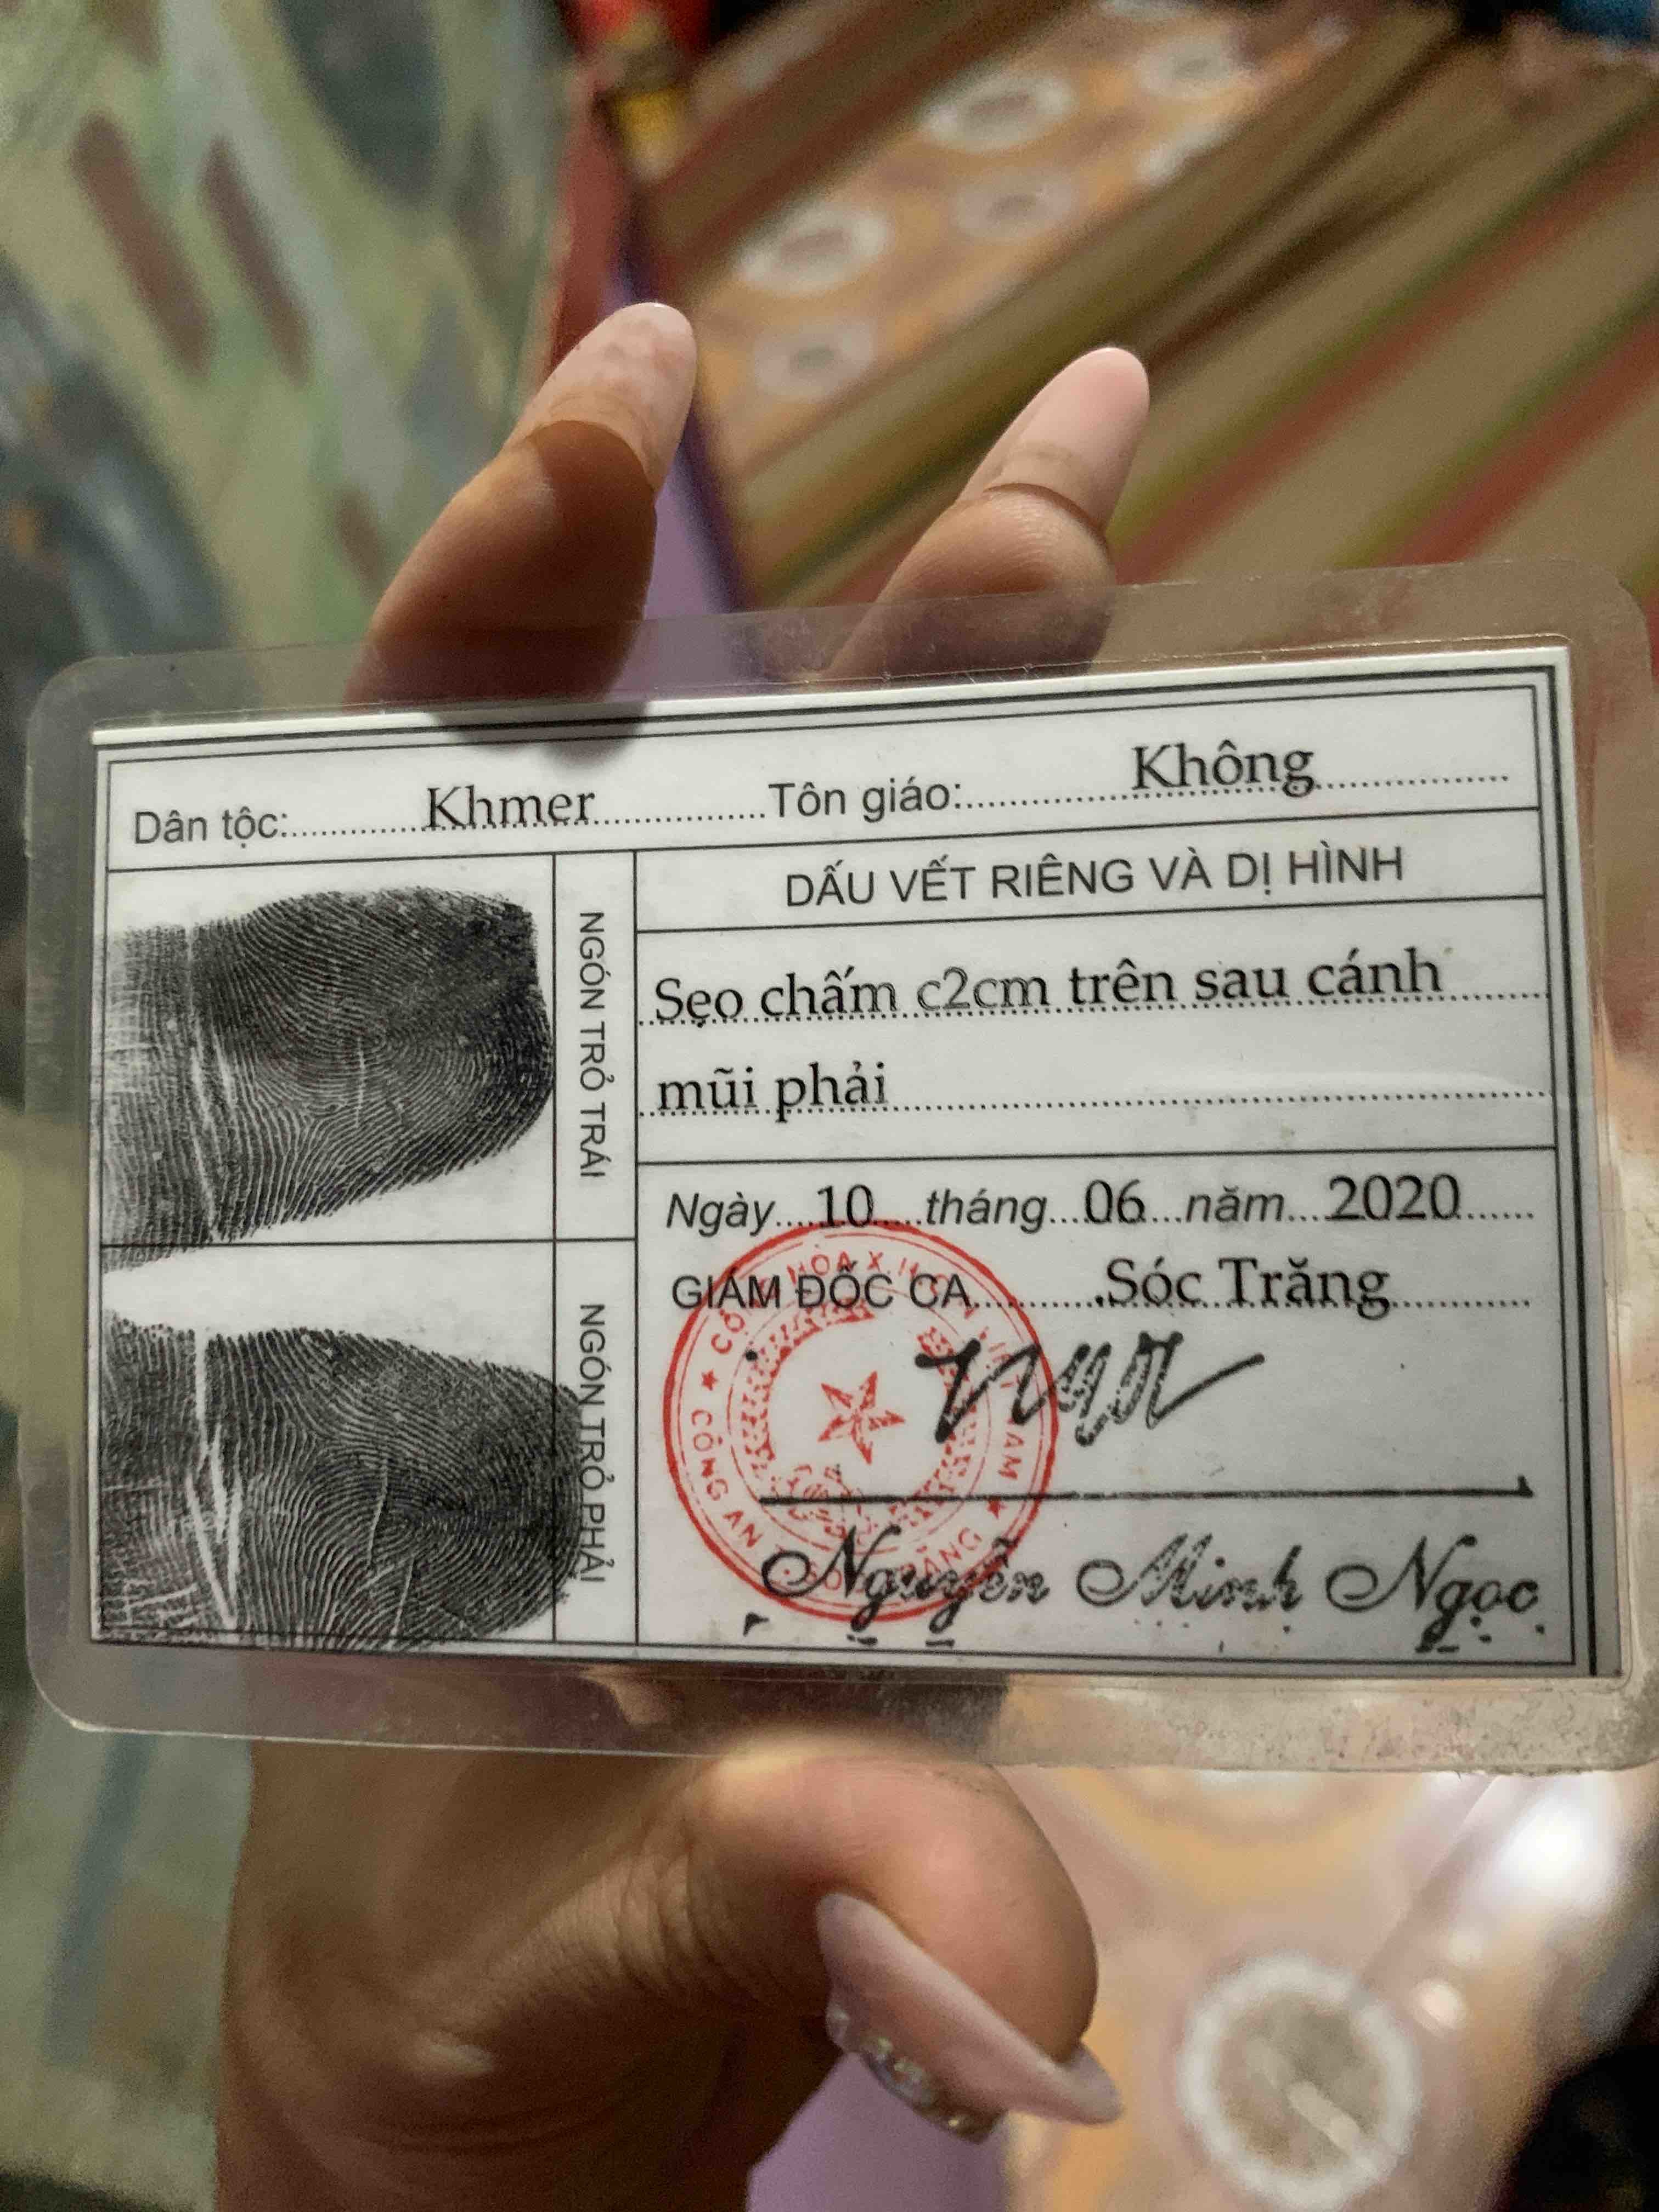 Dân tộc: Khmer Tôn giáo: Không
NGÓN TRỎ TRÁI
DẤU VẾT RIÊNG VÀ DỊ HÌNH
Sẹo chấm c2cm trên sau cánh
mũi phải
Ngày 10 tháng 06 năm 2020
GIÁM ĐỐC CA Sóc Trăng
CÔNG AN
NGÓN TRỎ PHẢI
Nguyễn Minh Ngọc